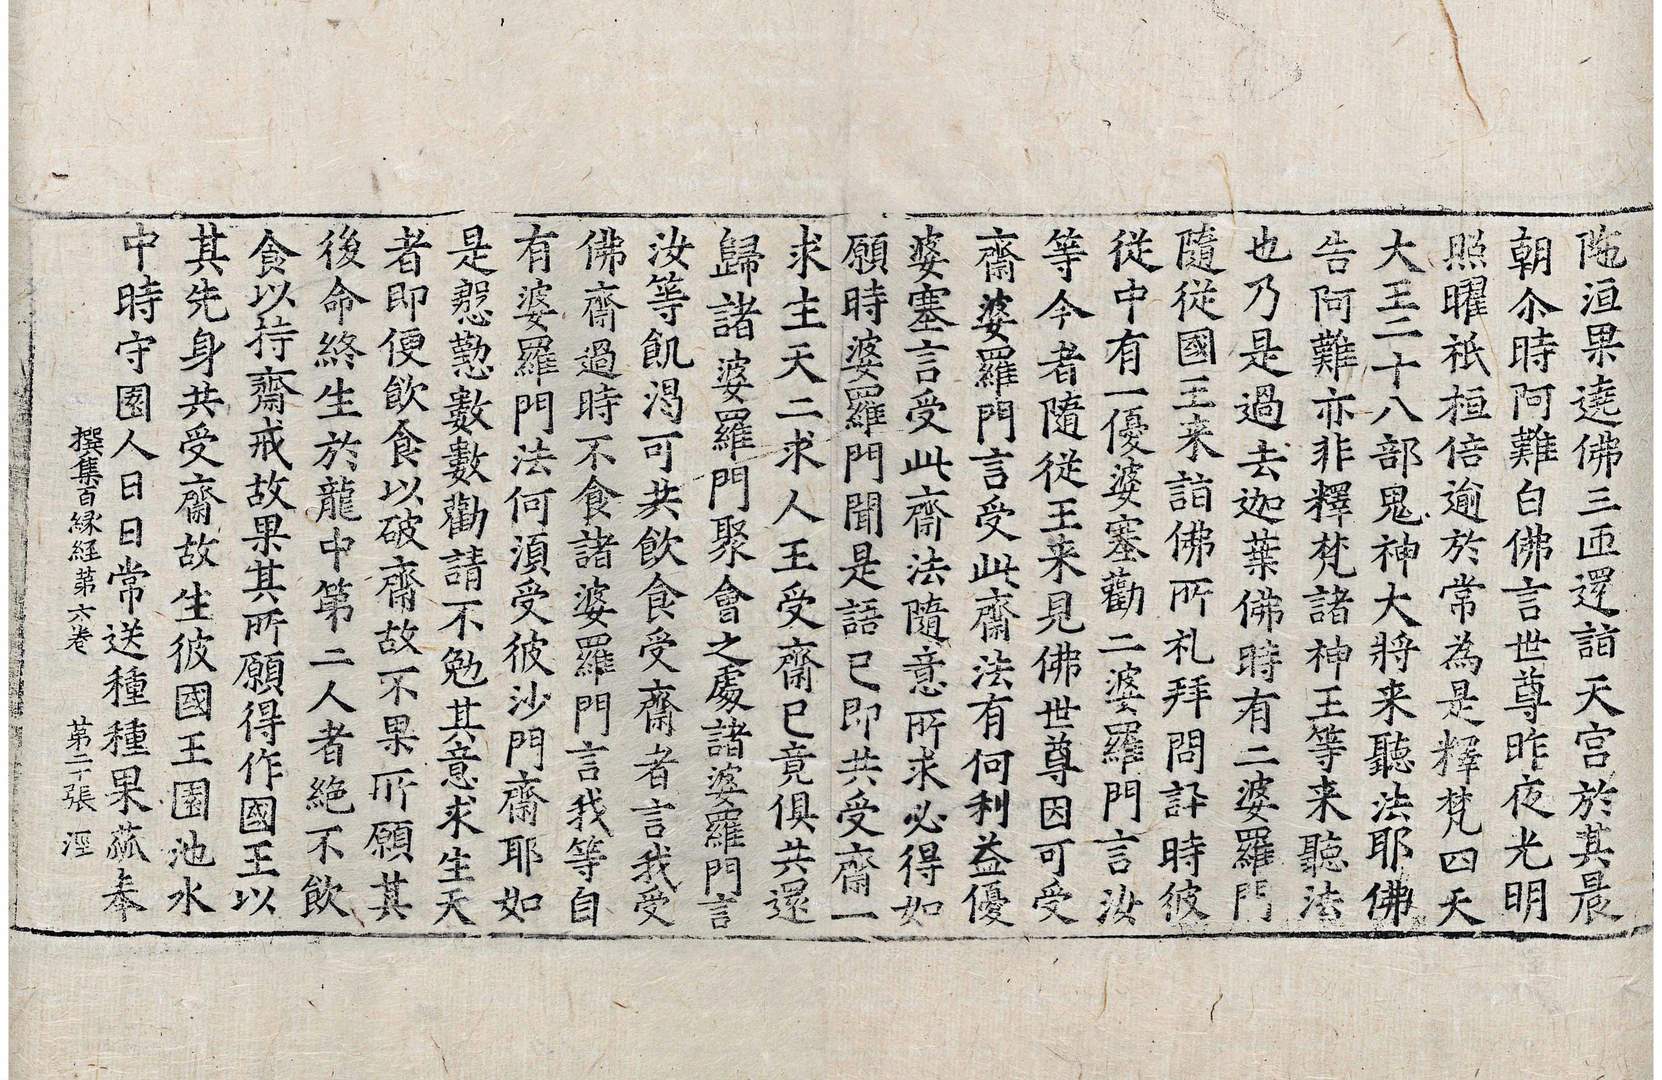 陁洹果遶佛三匝還詣天宫於其晨
朝尒時阿難白佛言世尊昨夜光明
照曜祇桓倍逾於常為是釋梵四天
大王二十八部鬼神大將来聽法耶佛
告阿難亦非釋梵諸神王等来聽法
也乃是過去迦葉佛時有二婆羅門
隨從國王来詣佛所礼拜問訊時彼
從中有一優婆塞勸二婆羅門言汝
等今者隨從王来見佛世尊因可受
齋婆羅門言受此齋法有何利益優
婆塞言受此齋法隨意所求必得如
願時婆羅門聞是語已即共受齋一
求生天二求人王受齋已竟俱共還
歸諸婆羅門聚會之處諸婆羅門言
汝等飢渴可共飲食受齋者言我受
佛齋過時不食諸婆羅門言我等自
有婆羅門法何須受彼沙門齋耶如
是慇懃數數勸請不勉其意求生天
者即便飲食以破齋故不果所願其
後命終生於龍中第二人者絶不飲
食以持齋戒故果其所願得作國王以
其先身共受齋故生彼國王園池水
中時守園人日日常送種種果蓏奉
撰集百緣経第六卷 第二十張 淫